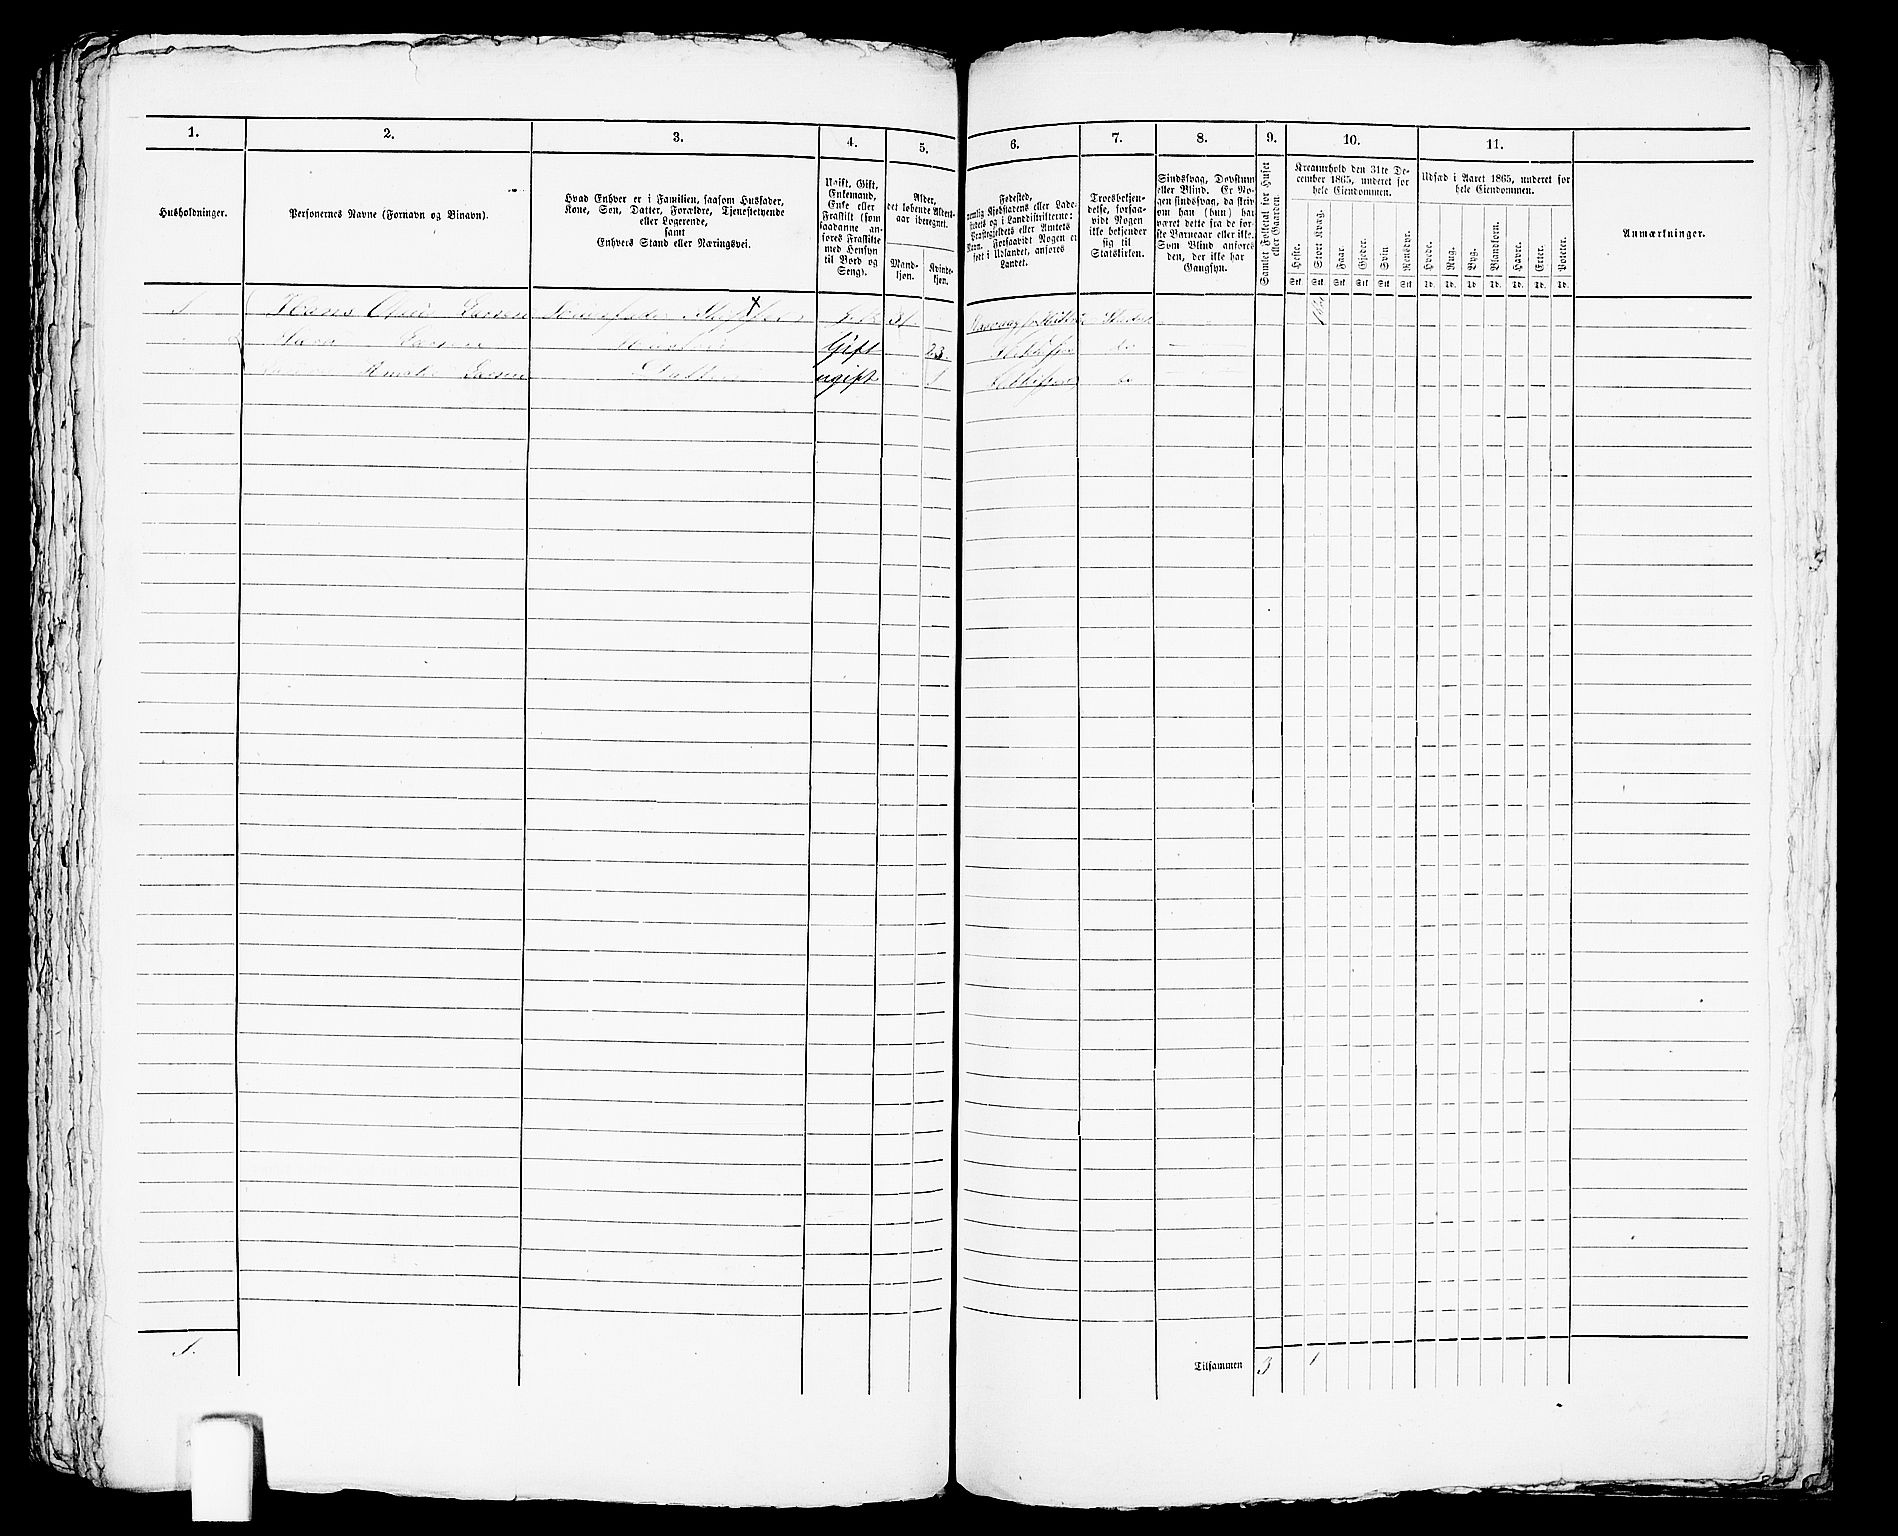 1.
2.
3.
4.
5.
6.
7.
8.
9.
10.
11.
Husholdninger.
Personernes Navne (Fornavn og Binavn).
Hvad Enhver er i Familien, saasom Husfader,
Kone, Søn, Datter, Forældre, Tjenestetyende
eller Logerende,
samt
Enhvers Stand eller Næringsvei.
Ugift, Gift,
Enkemand,
Enke eller
Fraskilt (som
saadanne an-
føres Fraskilte
med Hensyn
til Bord og
Seng).
Alder,
det løbende Alders-
aar iberegnet.
Mand-
kjøn.
Kvinde-
kjøn.
Fødested,
nemlig Kjøbstadens eller Lade-
stedets og i Landdistrikterne:
Præstegjeldets eller Amtets
Navn. Forsaavidt Nogen er
født i Udlandet, anføres
Landet.
Troesbekjen-
delse, forsaa-
vidt Nogen
ikke bekjender
sig til
Statskirken.
Sindssvag, Døvstum
eller Blind. Er No-
gen sindssvag, da skrives
om han (hun) har
været dette fra de før-
ste Barneaar eller ikke.
Som Blind anføres
den, der ikke har
Gangsyn.
Samlet Folketal for Huset
eller Gaarden.
Kreaturhold den 31te De-
cember 1865, underet for
hele Eiendommen.
Heste.
Stort Kvæg.
Faar.
Gjeder.
Svin
Rensdyr.
Stk Stk Stk Stk Stk Stk
Udsæd i Aaret 1865, underet for
hele Eiendommen.
Hvede.
Rug.
Byg.
Blandkorn.
Havre.
Erter.
Poteter.
Td. Td. Td. Td. Td. Td. Td.
Anmærkninger.
Hans Larsen Gift 31
Larsen Gift 23.
Larsen Datter ugift 1
1.
Tilsammen 3 1